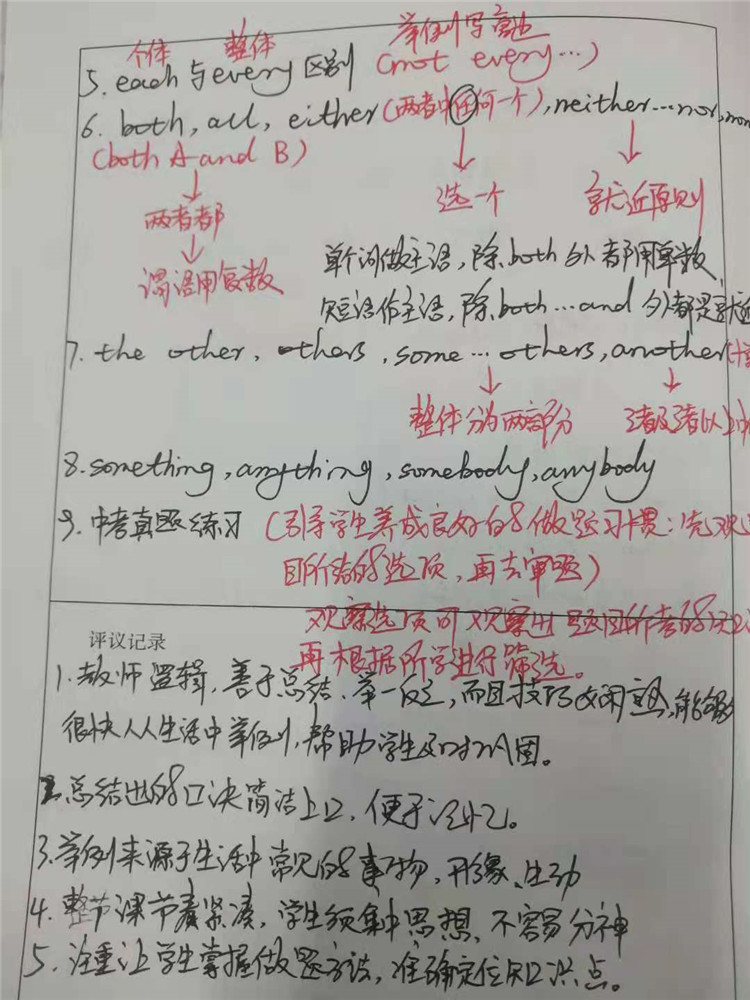 个体 整体 举例写高边
5. each 与 every 区别 (not every…)
6. both, all, either (两者中任何一个), neither…nor, non
(both A and B)
选一个 就近原则
两者都
谓语用复数
单个词做主语,除 both 外都用单数
短语作主语,除 both…and 外都是就近
7. the other, others, some…others, another
整体分为两部分 3者及3者以上中
8. something, anything, somebody, anybody
9. 中考真题练习 (引导学生养成良好的做题习惯:先观
目所给的选项,再去审题)
观察选项可观察出题目所考的
评议记录 再根据所学进行筛选。
1. 教师逻辑,善于总结、举一反三,而且技巧娴熟,能够
很快从生活中举例,帮助学生及时巩固。
2. 总结出的口决简洁上口,便于记忆。
3. 举例来源于生活中常见的事物,形象、生动
4. 整节课节奏紧凑,学生须集中思想,不容易分神
5. 注重让学生掌握做题方法,准确定位知识点。